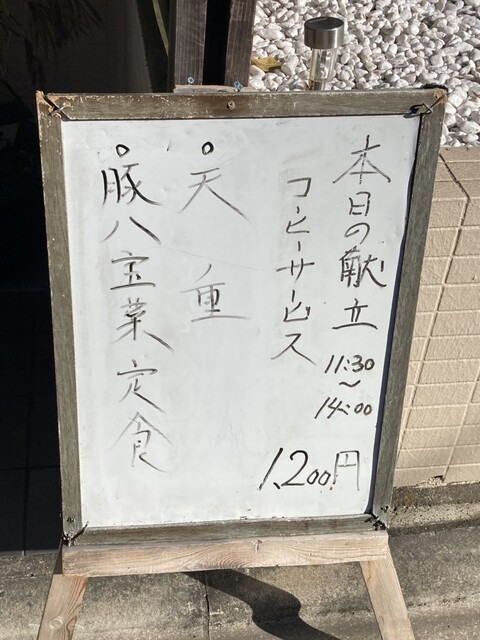 本日の献立
11:30
〜
14:00
コーヒーサービス
1,200円
○天重
○豚八宝菜定食